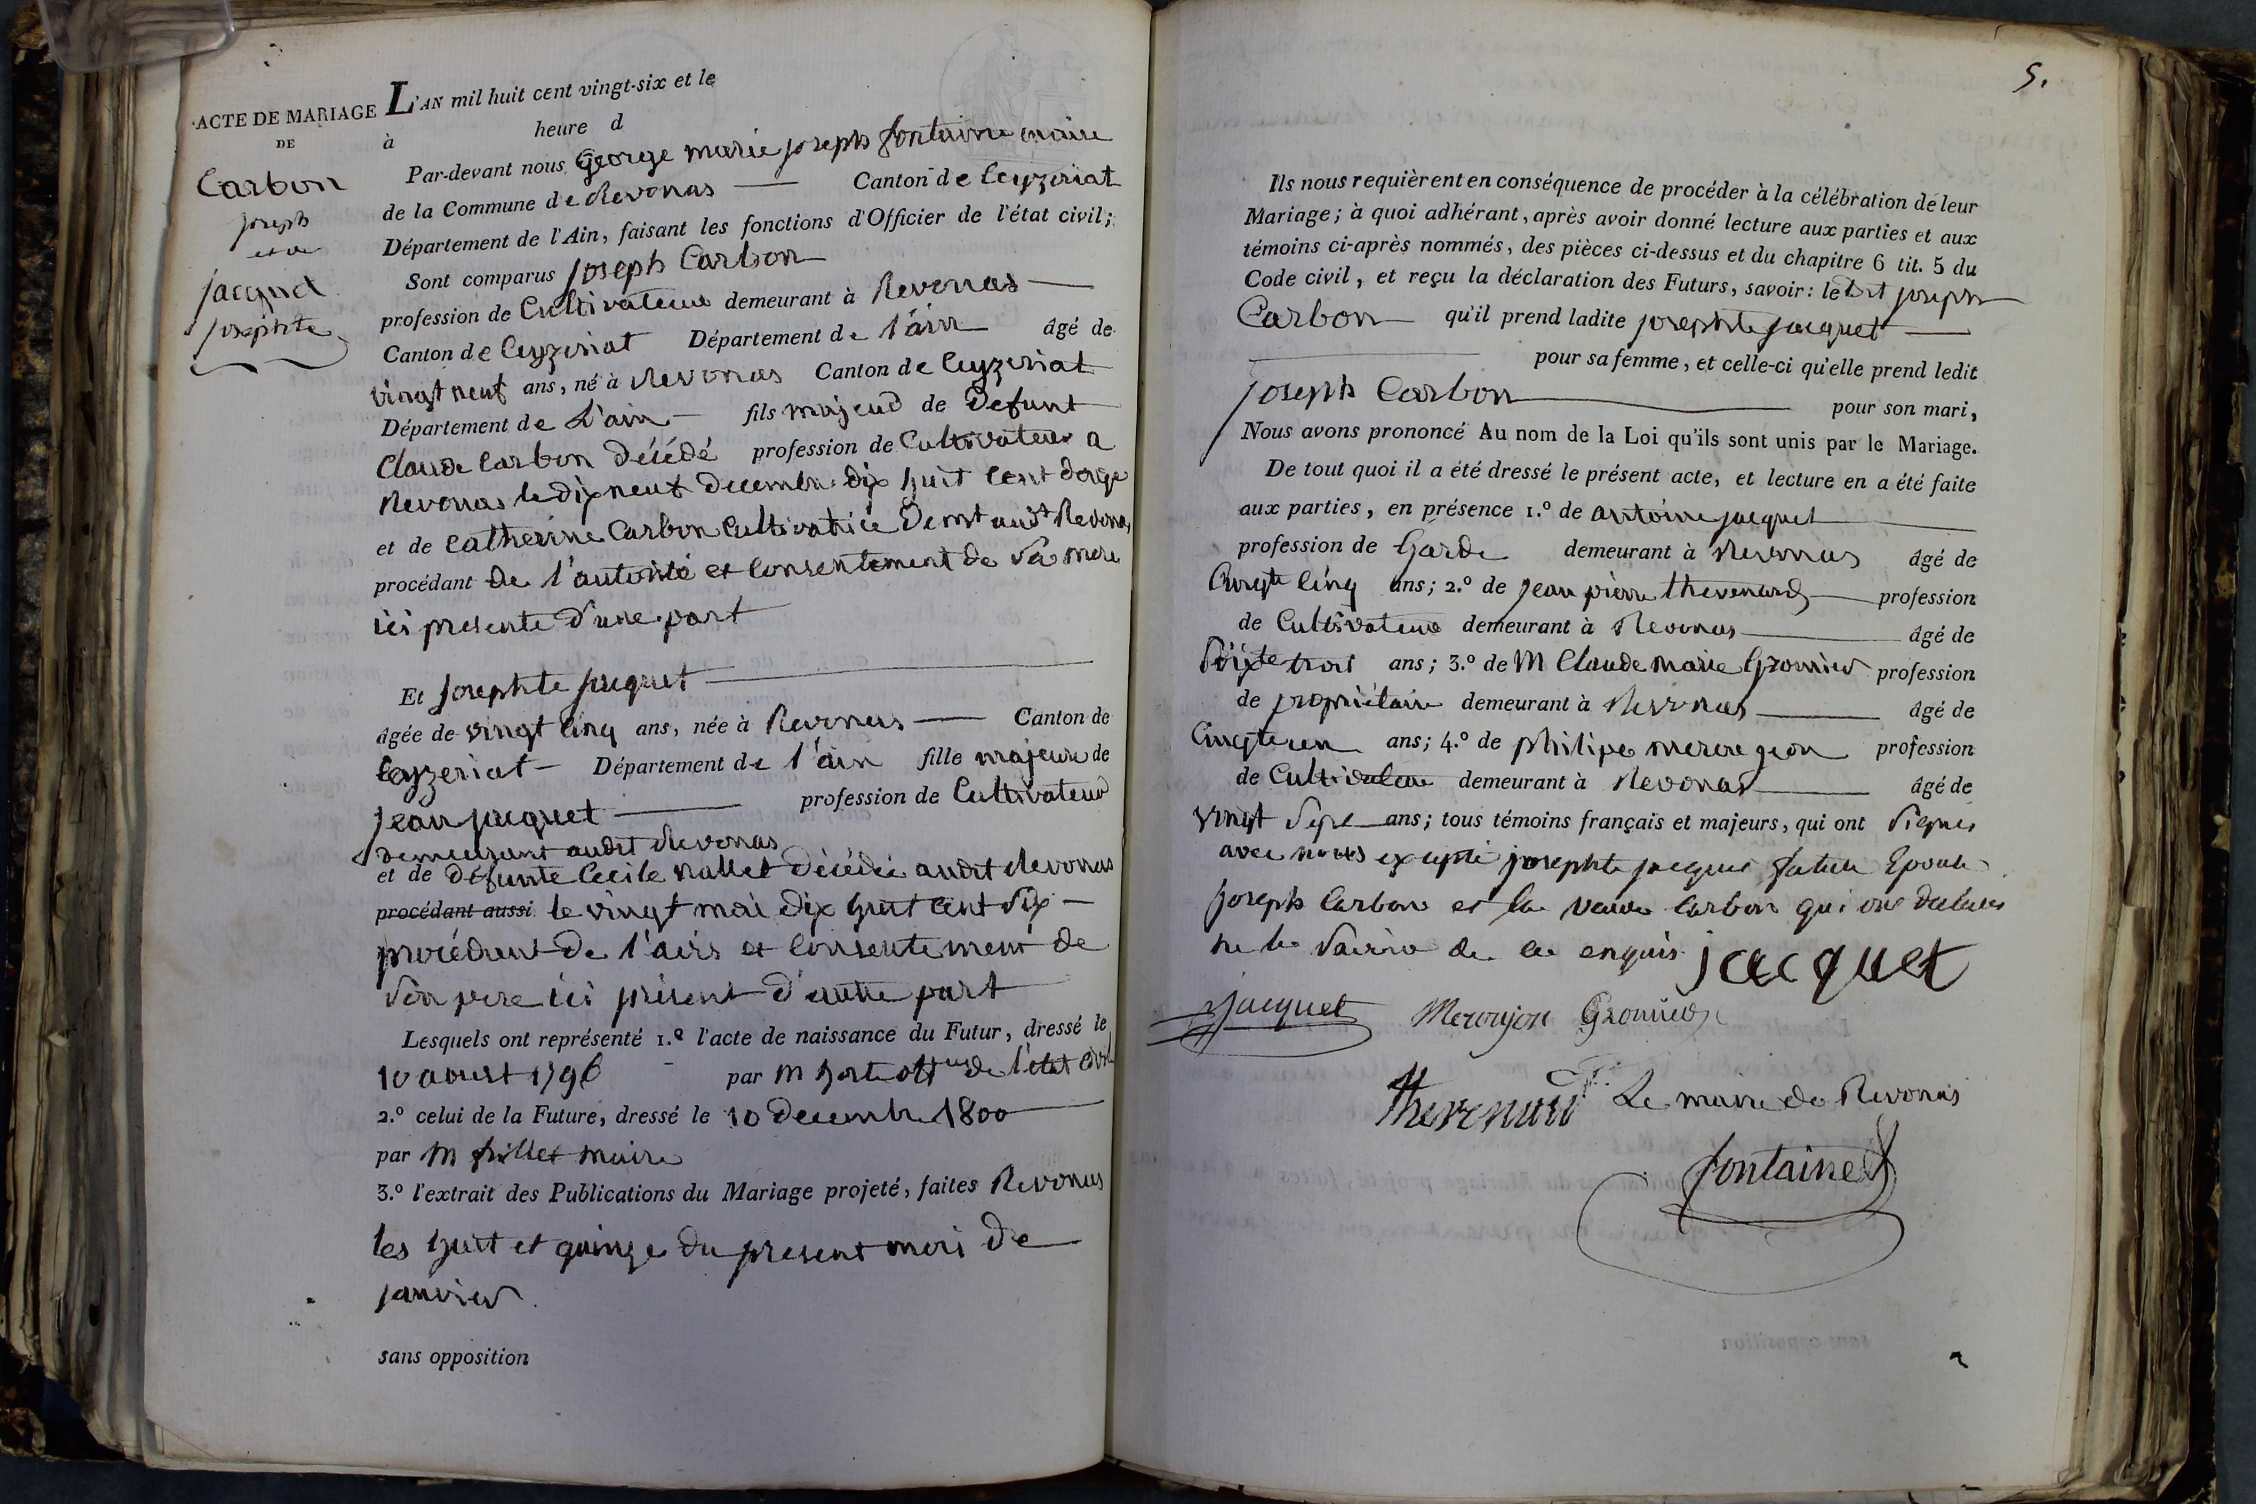 ACTE DE MARIAGE
DE
Carbon
joseph
et de
jacquet
josephte
L'AN mil huit cent vingt-six et le
à heure d
Par-devant nous George marie joseph fontaine maire
de la Commune de Revonas Canton de Ceyzeriat
Département de l'Ain, faisant les fonctions d'Officier de l'état civil;
Sont comparus joseph Carbon
profession de Cultivateur demeurant à Revonas
Canton de Ceyzeriat Département de l'ain âgé de
vingt neuf ans, né à Revonas Canton de Ceyzeriat
Département de L'ain fils majeur de Defunt
Claude Carbon décédé profession de Cultivateur a
Revonas le dix neuf decembre dix huit cent douze
et de Catherine Carbon Cultivatrice demt audt Revonas
procédant de l'autorité et consentement de sa mere
ici presente d'une part
Et josephte jacquet
âgée de vingt cinq ans, née à Revonas Canton de
Ceyzeriat Département de l'ain fille majeure de
jean jacquet profession de Cultivateur
demeurant audit Revonas
et de défunte Cecile nallet décédée audit Revonas
procédant aussi le vingt mai dix huit cent six
procédant de l'avis et consentement de
son pere ici présent d'autre part
Lesquels ont représenté 1.º l'acte de naissance du Futur, dressé le
10 aoust 1796 par M offer de l'état civil
2.º celui de la Future, dressé le 10 decembre 1800
par M maire
3.º l'extrait des Publications du Mariage projeté, faites Revonas
les huit et quinze du present mois de
janvier
sans opposition
5.
Ils nous requièrent en conséquence de procéder à la célébration de leur
Mariage; à quoi adhérant, après avoir donné lecture aux parties et aux
témoins ci-après nommés, des pièces ci-dessus et du chapitre 6 tit. 5 du
Code civil, et reçu la déclaration des Futurs, savoir: ledit joseph
Carbon qu'il prend ladite josephte jacquet
pour sa femme, et celle-ci qu'elle prend ledit
joseph Carbon pour son mari,
Nous avons prononcé Au nom de la Loi qu'ils sont unis par le Mariage.
De tout quoi il a été dressé le présent acte, et lecture en a été faite
aux parties, en présence 1.º de antoine jacquet
profession de Garde demeurant à Revonas âgé de
Cinqte cinq ans; 2.º de jean pierre thevenard profession
de Cultivateur demeurant à Revonas âgé de
Soixte trois ans; 3.º de M Claude marie Gromier profession
de propriétaire demeurant à Revonas âgé de
Cinqte un ans; 4.º de philipe profession
de Cultivateur demeurant à Revonas âgé de
vingt sept ans; tous témoins français et majeurs, qui ont signés
avec nous excepté josephte jacquet future Epouse
joseph Carbon et la veuve Carbon qui ont déclarés
ne le savoir de ce enquis jacquet
jacquet Meroujon Gromier
thevenard Le maire de Revonas
fontaine